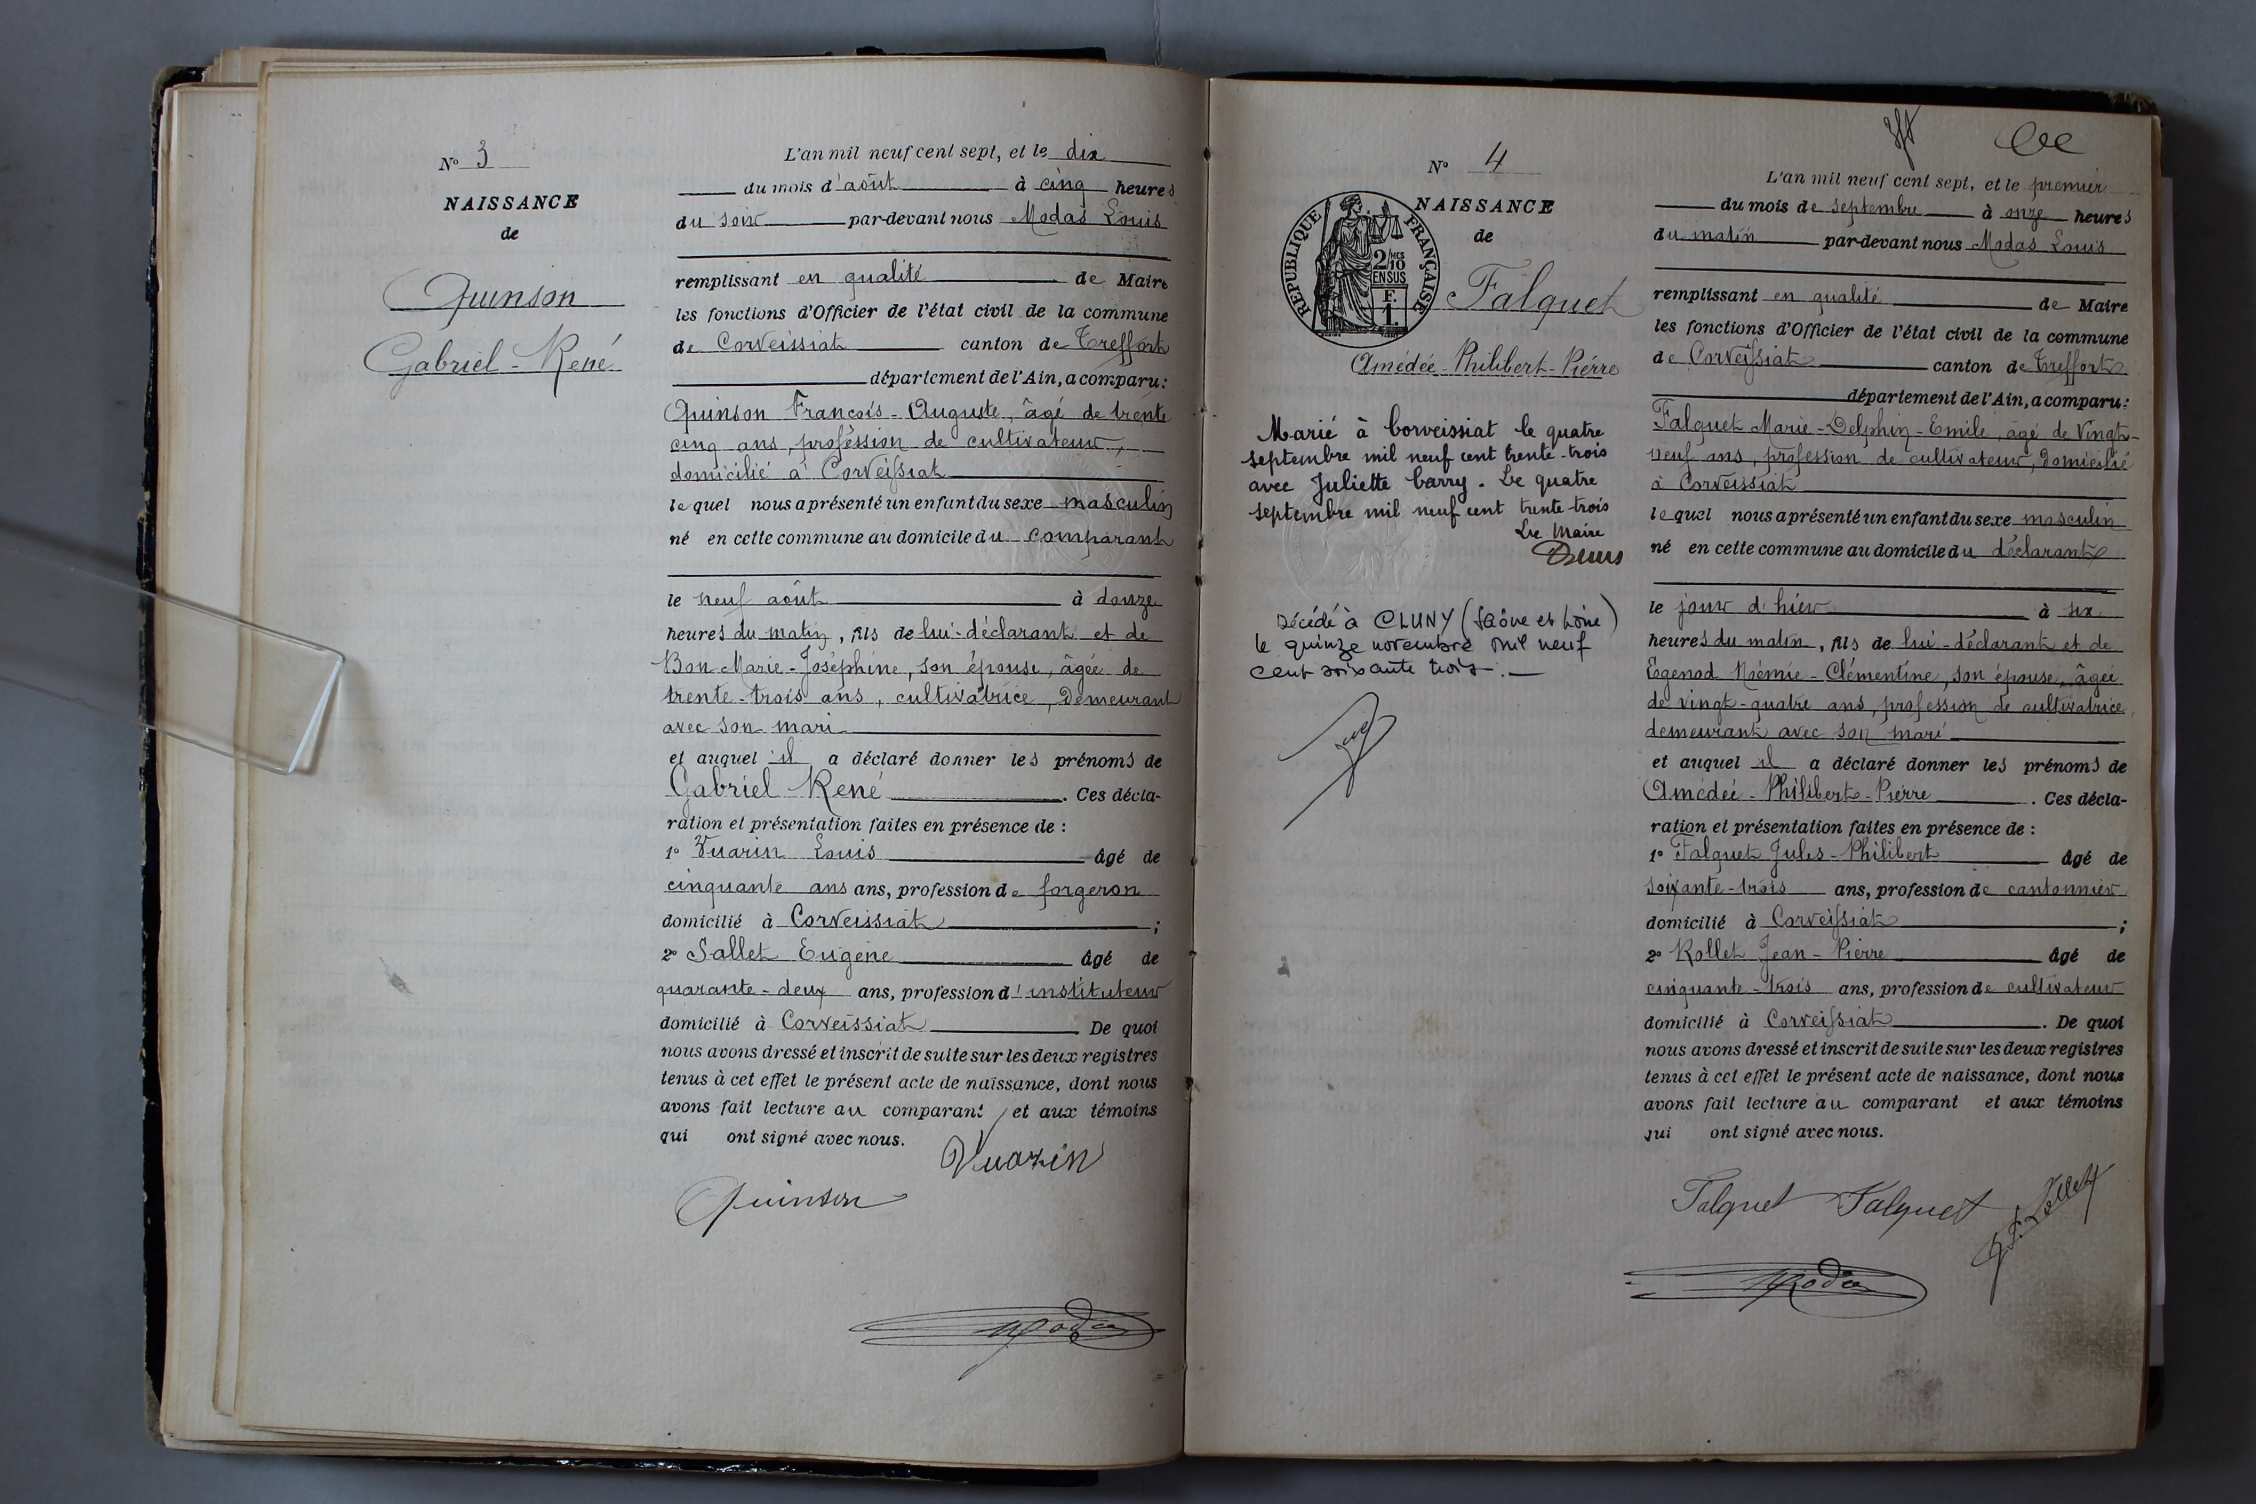 N° 3
NAISSANCE
de
Quinson
Gabriel-René
L'an mil neuf cent sept, et le dix
du mois d'août à cinq heures
du soir par-devant nous Modas Louis
remplissant en qualité de Maire
les fonctions d'Officier de l'état civil de la commune
de Corveissiat canton de Treffort
département de l'Ain, a comparu:
Quinson François-Auguste, âgé de trente
cinq ans, profession de cultivateur,
domicilié à Corveissiat
lequel nous a présenté un enfant du sexe masculin
né en cette commune au domicile du comparant
le neuf août à douze
heures du matin, fils de lui-déclarant et de
Bon Marie-Joséphine, son épouse, âgée de
trente-trois ans, cultivatrice, demeurant
avec son mari
et auquel il a déclaré donner les prénoms de
Gabriel René. Ces décla-
ration et présentation faites en présence de :
1° Vuarin Louis âgé de
cinquante ans ans, profession de forgeron
domicilié à Corveissiat ;
2° Sallet Eugène âgé de
quarante-deux ans, profession d'instituteur
domicilié à Corveissiat. De quoi
nous avons dressé et inscrit de suite sur les deux registres
tenus à cet effet le présent acte de naissance, dont nous
avons fait lecture au comparant et aux témoins
qui ont signé avec nous.
Vuarin
Quinson
Modas
N° 4
NAISSANCE
de
RÉPUBLIQUE FRANÇAISE
2/10 MES
EN SUS
F.
1.
Falquet
Amédée-Philibert-Pierre
Marié à Corveissiat le quatre
septembre mil neuf cent trente-trois
avec Juliette Carry. Le quatre
septembre mil neuf cent trente-trois
Le Maire
Décédé à CLUNY (Saône et Loire)
le quinze novembre mil neuf
cent soixante trois.
L'an mil neuf cent sept, et le premier
du mois de septembre à onze heures
du matin par-devant nous Modas Louis
remplissant en qualité de Maire
les fonctions d'Officier de l'état civil de la commune
de Corveissiat canton de Treffort
département de l'Ain, a comparu:
Falquet Marie-Delphin-Emile, âgé de vingt-
neuf ans, profession de cultivateur, domicilié
à Corveissiat
lequel nous a présenté un enfant du sexe masculin
né en cette commune au domicile du déclarant
le jour d'hier à six
heures du matin, fils de lui-déclarant et de
Eogenod Noémie-Clémentine, son épouse, âgée
de vingt-quatre ans, profession de cultivatrice,
demeurant avec son mari
et auquel il a déclaré donner les prénoms de
Amédée-Philibert-Pierre. Ces décla-
ration et présentation faites en présence de :
1° Falquet Jules-Philibert âgé de
soixante-trois ans, profession de cantonnier
domicilié à Corveissiat ;
2° Rollet Jean-Pierre âgé de
cinquante-trois ans, profession de cultivateur
domicilié à Corveissiat. De quoi
nous avons dressé et inscrit de suite sur les deux registres
tenus à cet effet le présent acte de naissance, dont nous
avons fait lecture au comparant et aux témoins
qui ont signé avec nous.
Falquet Falquet J. P. Rollet
Modas